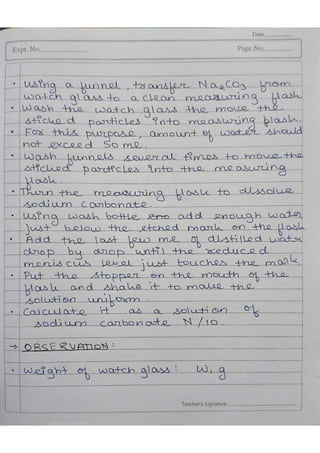 Date
Expt. No.
Page No.
• Using a funnel, transfer Na2CO3 from
watch glass to a clean measuring flask
• Wash the watch glass the move the
sticked particles into measuring flask.
• For this purpose, amount of water should
not exceed 50 ml.
• Wash funnels several times to move the
sticked particles into the measuring
flask.
• Turn the measuring flask to dissolve
sodium carbonate.
• Using wash bottle add enough water
just below the etched mark on the flask
• Add the last few ml of distilled water
drop by drop until the reduced
meniscus level just touches the mark
• Put the stopper on the mouth of the
flask and shake it to make the
solution uniform.
• Calculate it as a solution of
sodium carbonate N/10.
→ OBSERVATION:
• Weight of watch glass: W1 g
Teacher's Signature: